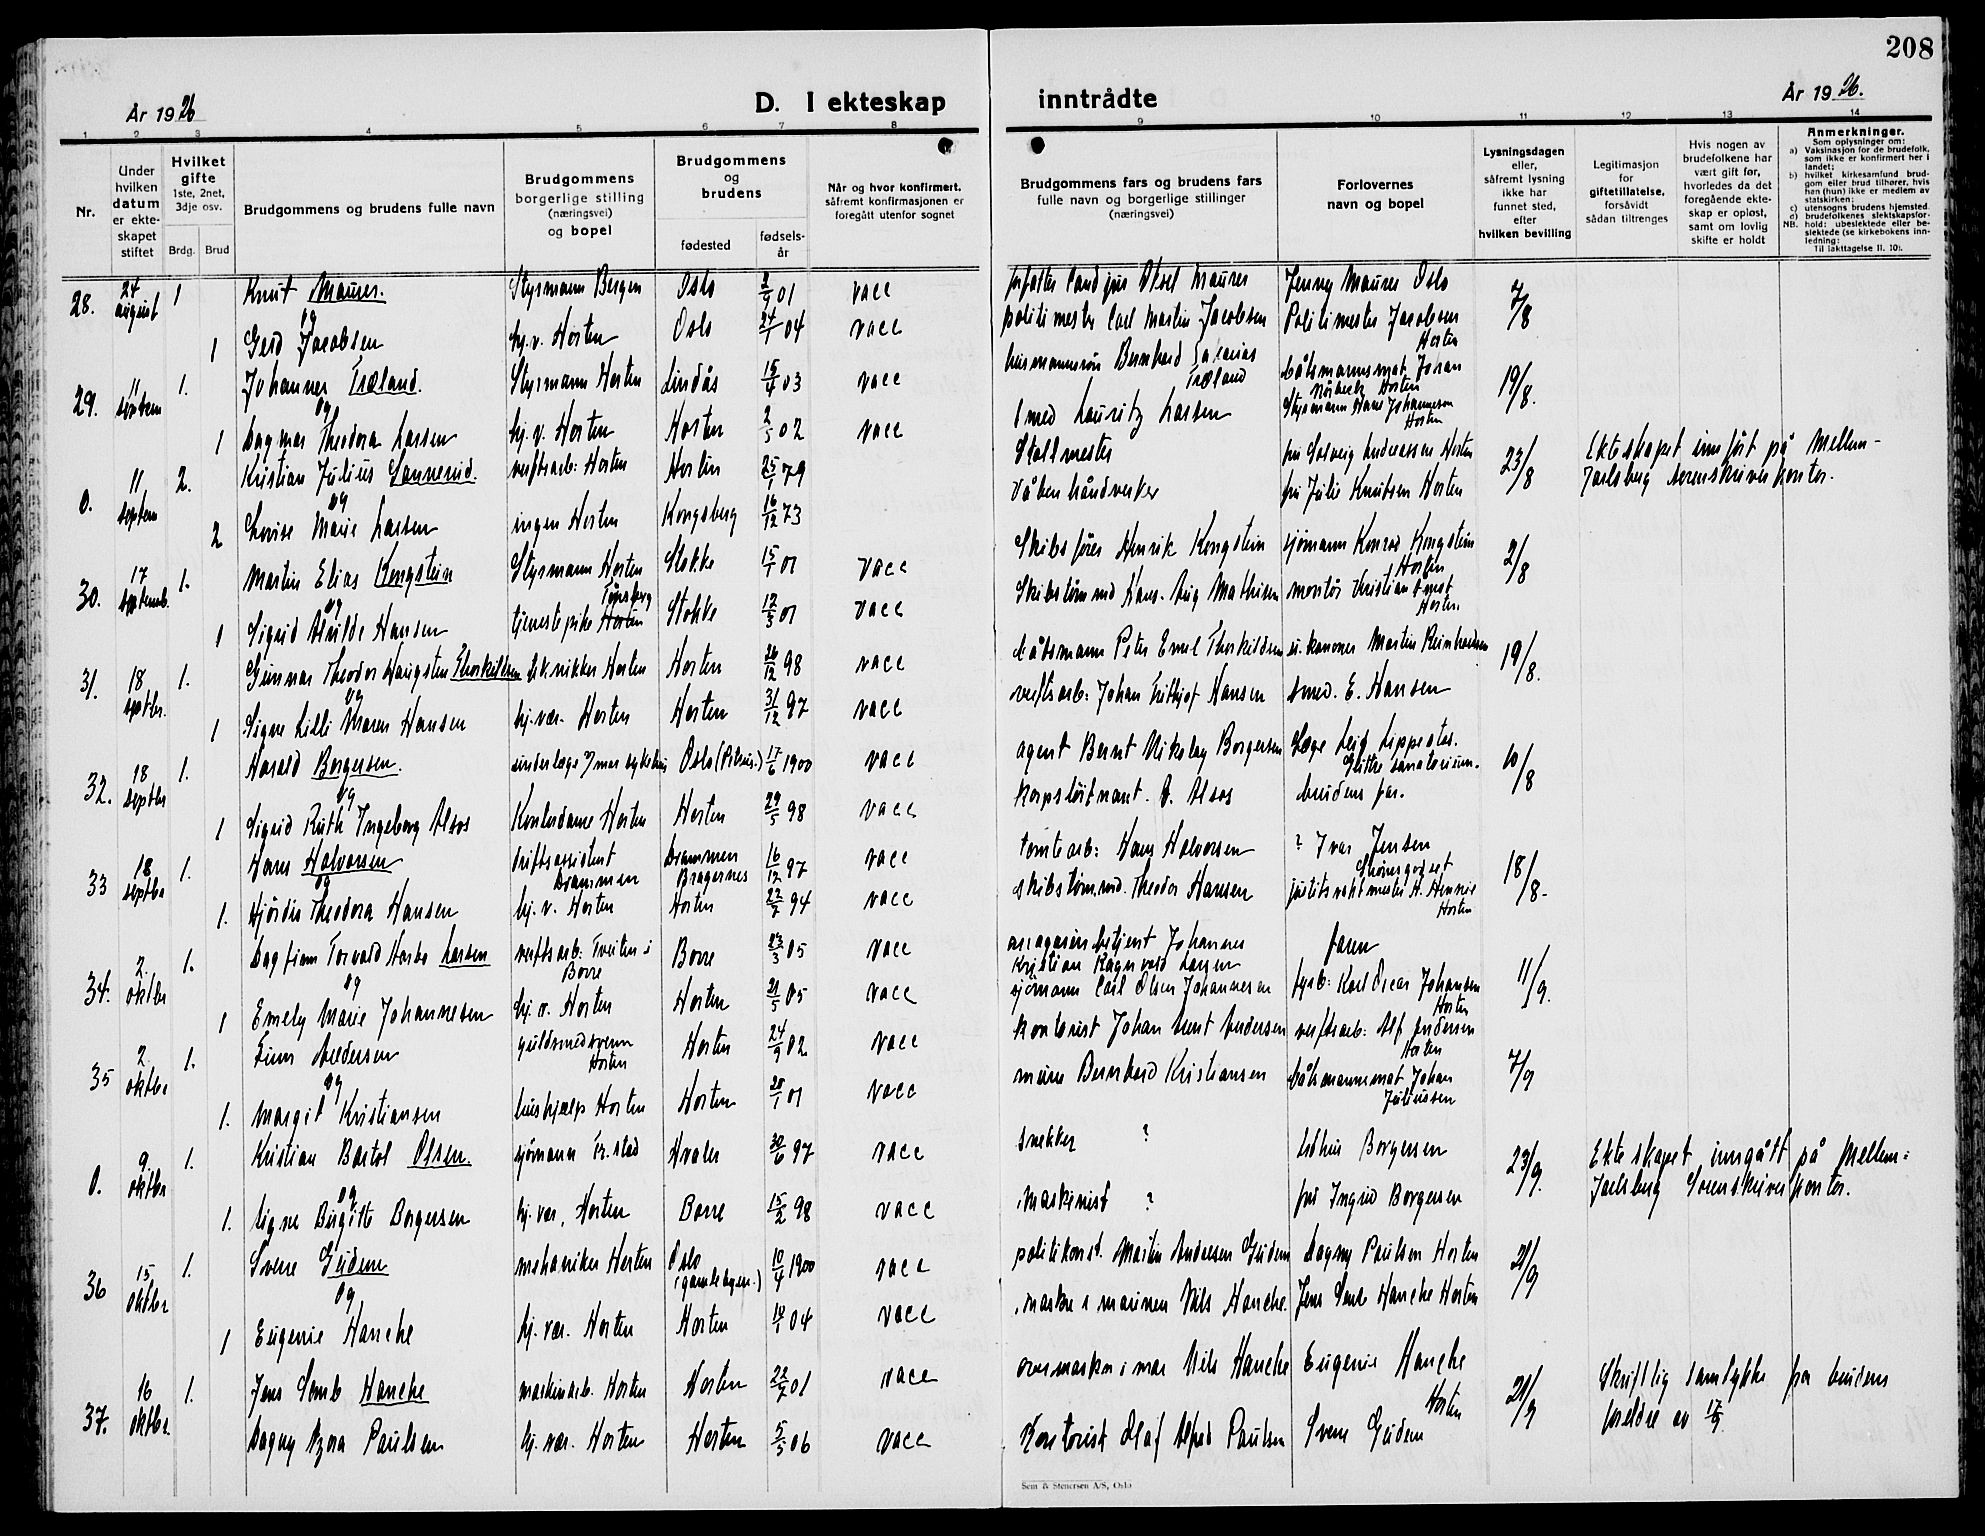 208
År 1926
D. I ekteskap inntrådte
År 1926.
1 2 3 4 5 6 7 8 9 10 11 12 13 14
Nr.
Under hvilken datum er ekteskapet stiftet
Hvilket gifte
1ste, 2net, 3dje osv.
Brdg. Brud
Brudgommens og brudens fulle navn
Brudgommens borgerlige stilling (næringsvei) og bopel
Brudgommens og brudens
fødested
fødselsår
Når og hvor konfirmert, såfremt konfirmasjonen er foregått utenfor sognet
Brudgommens fars og brudens fars fulle navn og borgerlige stillinger (næringsvei)
Forlovernes navn og bopel
Lysningsdagen eller, såfremt lysning ikke har funnet sted, efter hvilken bevilling
Legitimasjon for giftetillatelse, forsåvidt sådan tiltrenges
Hvis nogen av brudefolkene har vært gift før, hvorledes da det foregående ekteskap er opløst, samt om lovlig skifte er holdt
Anmerkninger.
Som oplysninger om:
a) Vaksinasjon for de brudefolk, som ikke er konfirmert her i landet;
b) hvilket kirkesamfund brudgom eller brud tilhører, hvis han (hun) ikke er medlem av statskirken;
c) utensogns brudens hjemsted.
d) brudefolkenes slektskapsforhold: ubeslektede eller beslektede (se kirkebokens innledning:
NB. Til iakttagelse II. 10).
28. 24 august 1 Knut Maurer. Styrmann Bergen Oslo 01 vacc Aksel Maurer Jenny Maurer Oslo 7/8
og
1 Gerd Jacobsen hj. v. Horten Oslo 04 vacc politimester Carl Martin Jacobsen Politimester Jacobsen Horten
29. 11 septem 1. Johannes Træland. Styrmann Horten Lindås 15/4 03 vacc Bernhard Zakarias Træland båtsmannsmat Johan Horten 19/8.
og
1 Dagmar Theodora Larsen hj. v. Horten Horten 2/5 02 vacc Smed Lauritz Larsen Styrmann Hans Johannesen Horten
0. 11 septem 2. Kristian Julius Sannerud. verftsarb: Horten Horten 25/1 79 Stallmester fru Solveig Andersen Horten 23/8 Ekteskapet innført på Mellem-
og
2 Lovise Marie Larsen ingen Horten Kongsberg 16/12 73 Våbenhåndverker fru Julie Knutsen Horten Jarlsberg sorenskriverkontor.
30. 17 septemb. 1. Martin Elias Kongstein Styrmann Horten Stokke 15/1 01 vacc Skibsfører Henrik Kongstein sjømann Konrad Kongstein Horten 2/8
og
1 Sigrid Alvilde Hansen tjenestepike Horten Tønsberg Stokke 12/3 01 vacc Skibstømmd Hans Aug Mathisen montør Kristian Horten.
31. 18 septbr. 1. Gunnar Theodor Haugsten Thorkildsen teknikker Horten Horten 26/12 98 vacc båtsmann Peter Emil Thorkildsen Martin Reinhardsen 19/8.
og
1 Signe Lilli Maren Hansen hj. vær. Horten Horten 31/12 97 vacc verftsarb: Johan Fritjof Hansen smed. E. Hansen
32. 18 septbr 1. Harald Borgersen. underlæge v/mar sykehus Oslo 17/6 1900 vacc agent Bernt Nikolay Borgersen Læge Leif Lippestad. Glittre sanatorium. 10/8
og
1 Sigrid Ruth Ingeborg Alsos Kontordame Horten Horten 29/5 98 vacc korpsløitnant. O. Alsos brudens far.
33 18 septbr 1. Hans Halvorsen driftsassistent Drammen Drammen Bragernes 16/12 97 vacc tomtearb: Hans Halvorsen ? Ivar Jensen 18/8-
og
1. Hjördis Theodora Hansen hj. v. Horten Horten 22/7 94 vacc skibstømmd. Theodor Hansen Horten
34. 2. oktbr 1. Dagfinn Torvald Larsen verftsarb. Tveiten i Borre Borre 23/3 05 vacc magasinbetjent Johannes Kristian Ragnvald Larsen faren 11/9.
og
1 Emely Marie Johannesen hj. v. Horten Horten 21/5 05 vacc sjømann Carl Olsen Johannesen fyrb: Karl Oscar Johansen Horten
35 2. oktbr 1. Finn Andersen guldsmedsvenn Horten Horten 24/9 02 vacc kontorist Johan Andersen verftsarb: Alf Andersen Horten 7/9
og
1. Margit Kristiansen hushjælp Horten Horten 28/1 01 vacc murer Bernhard Kristiansen båtsmannsmat Johan Juliussen
0. 9. oktbr 1. Kristian Bartol Olsen. sjømann Fr.stad Hvaler 30/6 97 vacc snekker ? Borgersen 23/9. Ekteskapet inngått på Mellem=
og
1. Signe Birgitte Borgersen hj. vær, Horten Borre 15/2 98 vacc maskinist ? fru Ingrid Borgersen Jarlsberg Sorenskriverkontor.
36 15. oktbr 1. Sverre Gudem mekaniker Horten Oslo (gamlebyen.) 10/4 1900 vacc politikonst. Martin Andersen Gudem Dagny Paulsen Horten 21/9
og
1 Eugenie Hanche hj. vær. Horten Horten 04 vacc maskn i marinen Nils Hanche. Jens Semb Hanche Horten
37. 16 oktbr. 1. Jens Semb Hanche maskinarb. Horten Horten 22/7 01 vacc overmaskn i mar Nils Hanche Eugenie Hanche Horten 21/9 Skriftlig samtykke fra brudens
Dagny Azora Paulsen hj. vær. Horten Horten 5/5 06 vacc Kontorist Olaf Alfred Paulsen Sverre Gudem foreldre av 17/9.
Sem & Stenersen A/S, Oslo